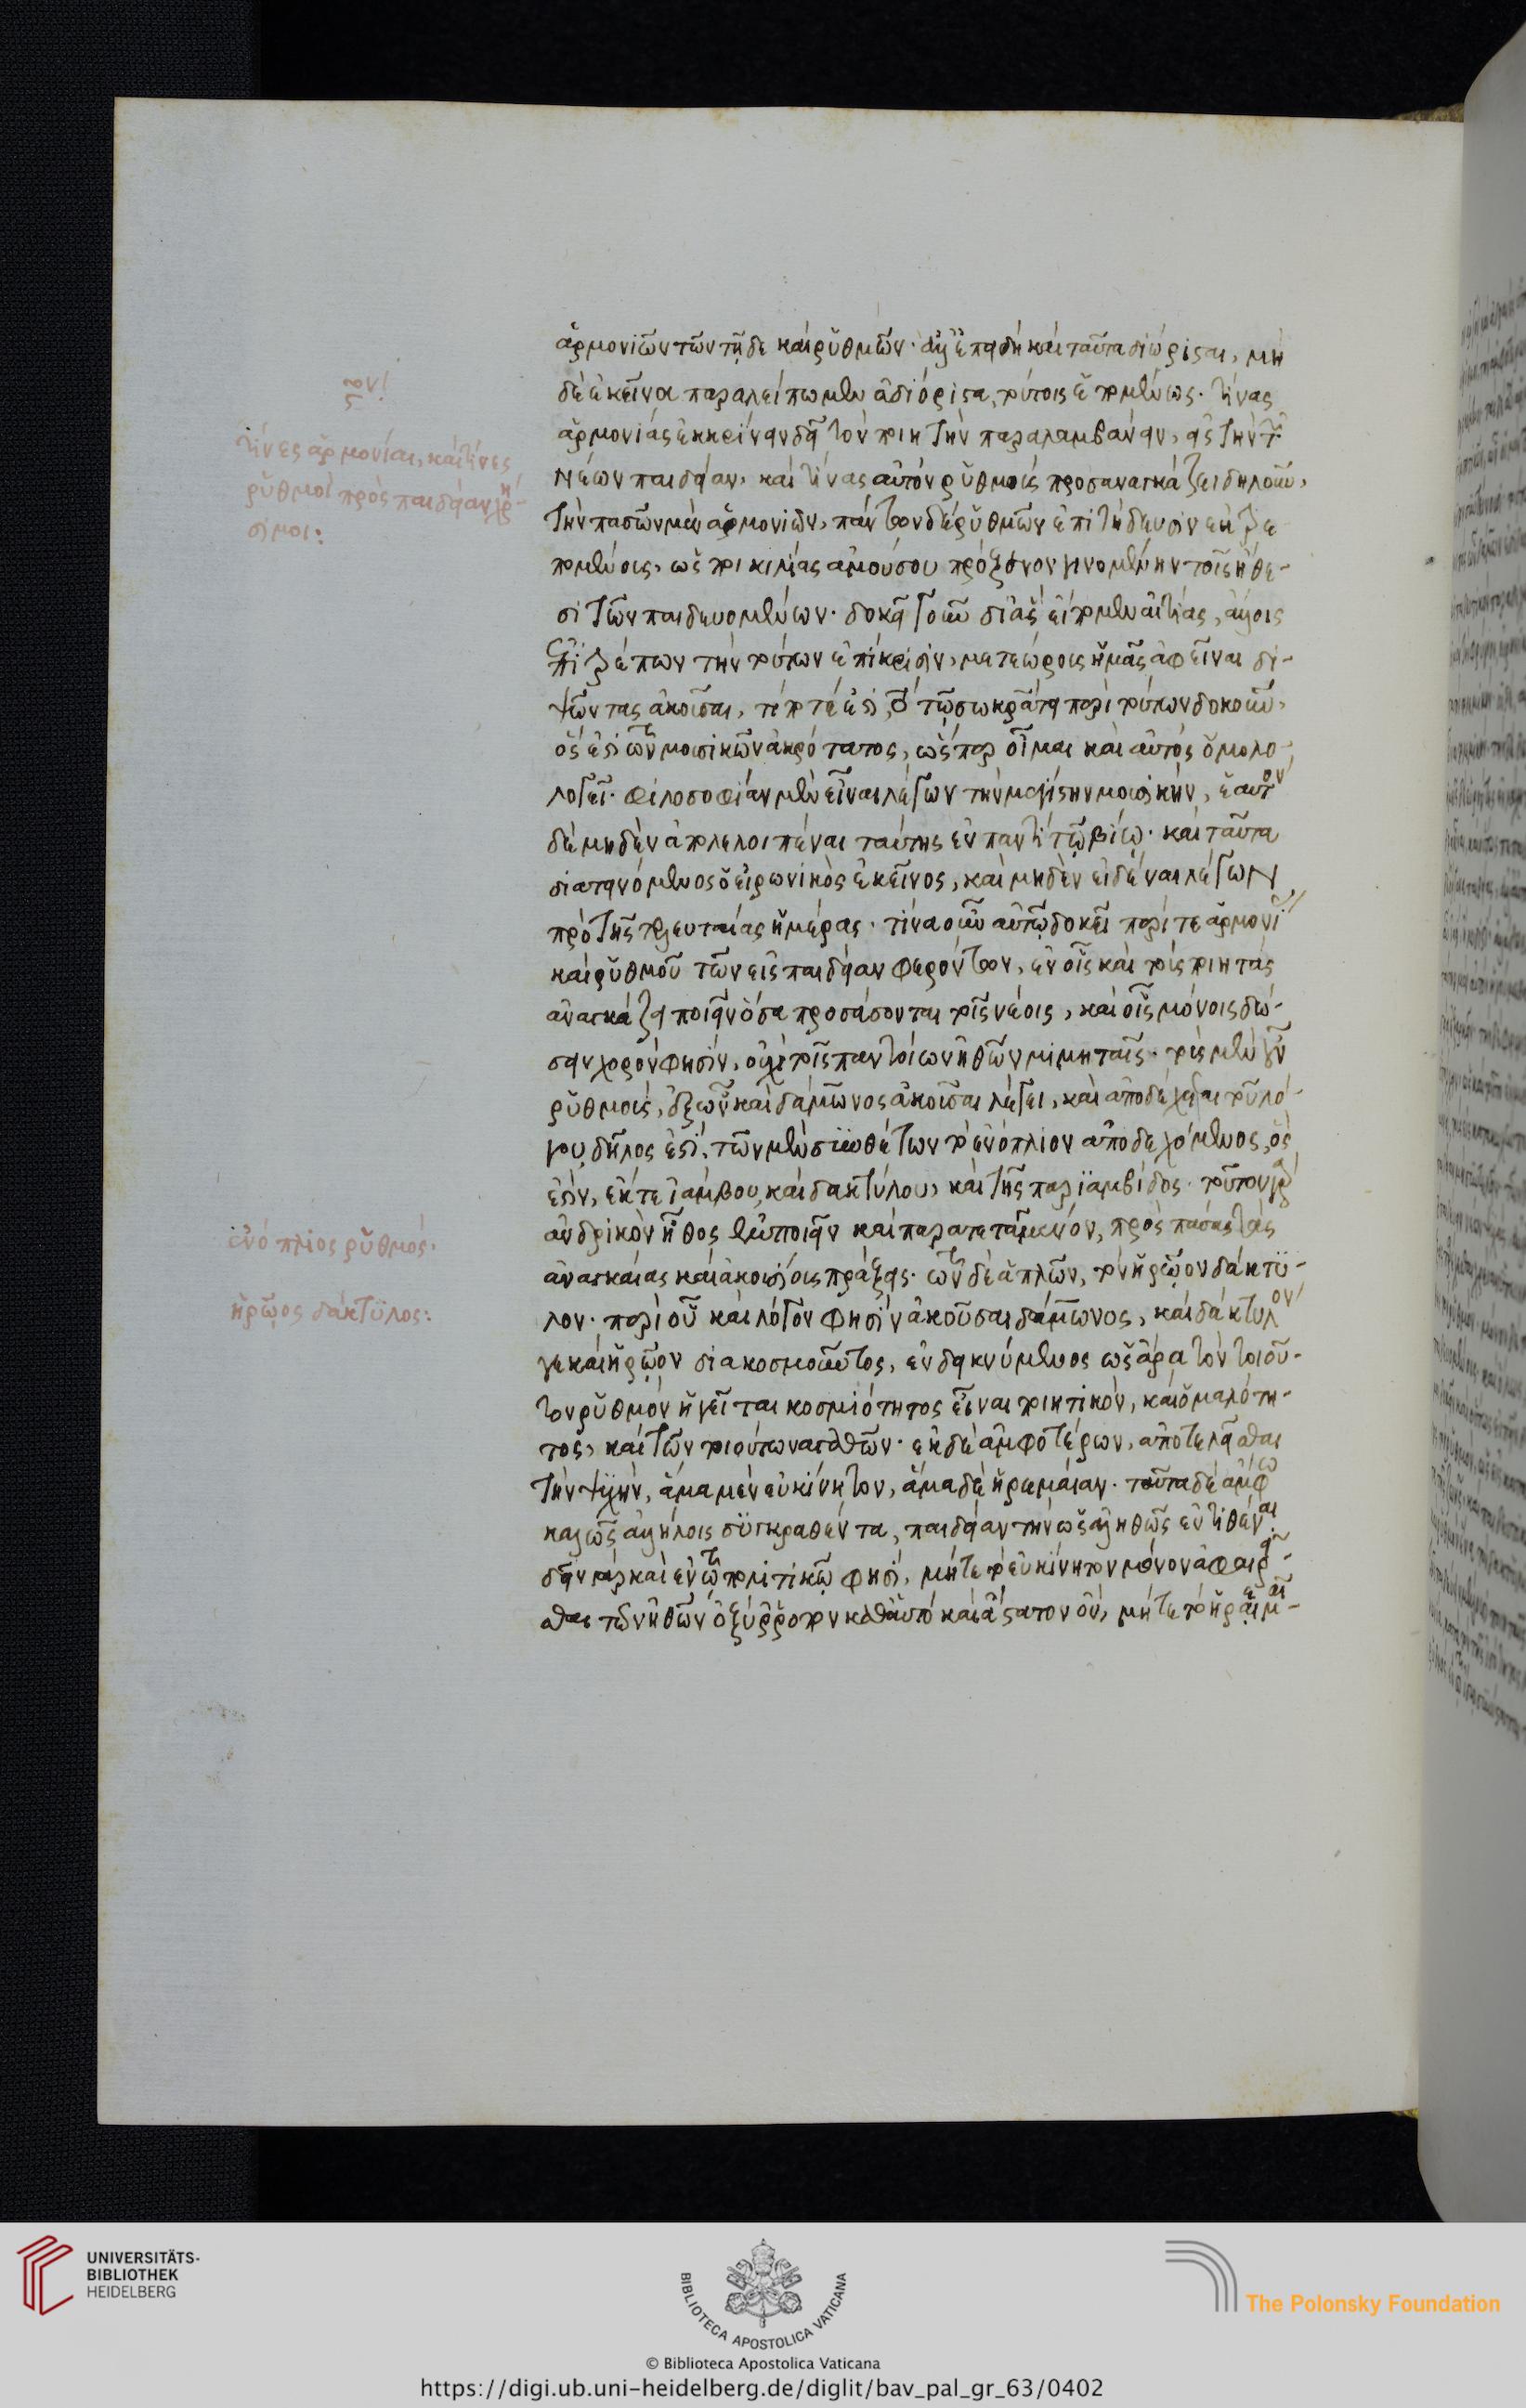 ἁρμονιῶν τῶν τῇδε καὶ ῥυθμῶν· ἀλλ' ἐπειδὴ καὶ ταῦτα διώρισται, μη
δὲ ἐκεῖνα παραλείπωμεν ἀδιόριστα, τούτοις ἑπομένως. τίνας
ἁρμονίας ἐκκρίνειν δεῖ τὸν ποιητὴν παραλαμβάνειν, εἰς τὴν τ
νέων παιδείαν, καὶ τίνας αὐτὸν ῥυθμοὺς προσαναγκάζει δηλοῦν,
τὴν πασῶν μὲν ἁρμονιῶν, πάντων δὲ ῥυθμῶν ἐπιτήδευσιν ἐκτρε
πομένοις, ὡς ποικιλίας ἀμούσου πρόξενον γινομένην τοῖς ἤθε-
σι τῶν παιδευομένων. δοκεῖ γοῦν δι' ἃς εἴπομεν αἰτίας, ἄλλοις
ἐπιτρέπων τὴν τούτων ἐπίκρισιν, μετεώρους ἡμᾶς ἀφεῖναι δι-
ψῶντας ἀκοῦσαι, τί ποτέ ἐστι τὸ τῷ σωκράτει περὶ τούτων δοκοῦν,
ὅς ἐστι τῶν μουσικῶν ἀκρότατος, ὥσπερ οἶμαι καὶ αὐτὸς ὁμολο-
λογεῖ· φιλοσοφίαν μὲν εἶναι λέγων τὴν μεγίστην μουσικήν, ἑαυτὸν
δὲ μηδὲν ἀπολελοιπέναι ταύτης ἐν παντὶ τῷ βίῳ· καὶ ταῦτα
διατεινόμενος ὁ εἰρωνικὸς ἐκεῖνος, καὶ μηδὲν εἰδέναι λέγων
πρὸ τῆς τελευταίας ἡμέρας. τίνα οὖν αὐτῷ δοκεῖ περί τε ἁρμονι
καὶ ῥυθμοῦ τῶν εἰς παιδείαν φερόντων, ἐν οἷς καὶ τοὺς ποιητὰς
ἀναγκάζει ποιεῖν ὅσα προσᾴσονται τοῖς νέοις, καὶ οἷς μόνοις δώ-
σειν χορόν φησιν, οὐχὶ τοῖς παντοίων ἠθῶν μιμηταῖς. τοὺς μὲν οὖν
ῥυθμοὺς, ἐξ ὧν καὶ δάμωνος ἀκοῦσαι λέγει, καὶ ἀποδέχεσθαι τοῦ λό-
γου, δῆλος ἐστὶ, τῶν μὲν συνθέτων τὸν ἐνόπλιον ἀποδεχόμενος, ὅς
ἐστιν, ἔκ τε ἰάμβου, καὶ δακτύλου, καὶ τῆς παριαμβίδος. τοῦτον γὰρ
ἀνδρικὸν ἦθος ἐμποιεῖν καὶ παρατεταμένον, πρὸς πάσας τὰς
ἀναγκαίας καὶ ἀκουσίους πράξεις. τῶν δὲ ἁπλῶν, τὸν ἡρῷον δάκτυ-
λον· περὶ οὗ καὶ λόγον φησὶν ἀκοῦσαι δάμωνος, καὶ δάκτυλον
γε καὶ ἡρῷον διακοσμοῦντος, ἐνδεικνύμενος ὡς ἄρα τὸν τοιοῦ-
τον ῥυθμὸν ἡγεῖται κοσμιότητος εἶναι ποιητικὸν, καὶ ὁμαλότη-
τος, καὶ τῶν τοιούτων ἀγαθῶν. ἐκ δὲ ἀμφοτέρων, ἀποτελεῖσθαι
τὴν ψυχὴν, ἅμα μὲν εὐκίνητον, ἅμα δὲ ἠρεμαίαν. ταῦτα δὲ ἄμφω
καλῶς ἀλλήλοις συγκραθέντα, παιδείαν τὴν ὡς ἀληθῶς ἐντιθέναι.
δεῖν γὰρ καὶ ἐν τῷ πολιτικῷ φησὶ, μήτε τὸ εὐκίνητον μόνον ἀφαιρεῖ-
σθαι τῶν ἠθῶν ὀξύρροπον καθ' αὑτὸ καὶ ἄστατον ὂν, μήτε τὸ ἠρεμαῖ-
τίνες ἁρμονίαι, καὶ τίνες
ῥυθμοὶ πρὸς παιδείαν χρή-
σιμοι:
ἐνόπλιος ῥυθμός.
ἡρῷος δάκτυλος:
UNIVERSITÄTS-
BIBLIOTHEK
HEIDELBERG
BIBLIOTECA APOSTOLICA VATICANA
© Biblioteca Apostolica Vaticana
The Polonsky Foundation
https://digi.ub.uni-heidelberg.de/diglit/bav_pal_gr_63/0402